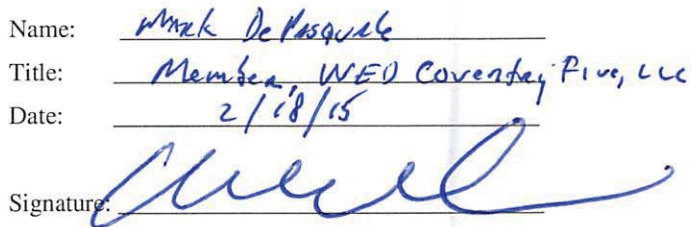 Name: Mark DePasquale
Title: Member, WED Coventry Five, LLC
Date: 2/18/15
Signature: